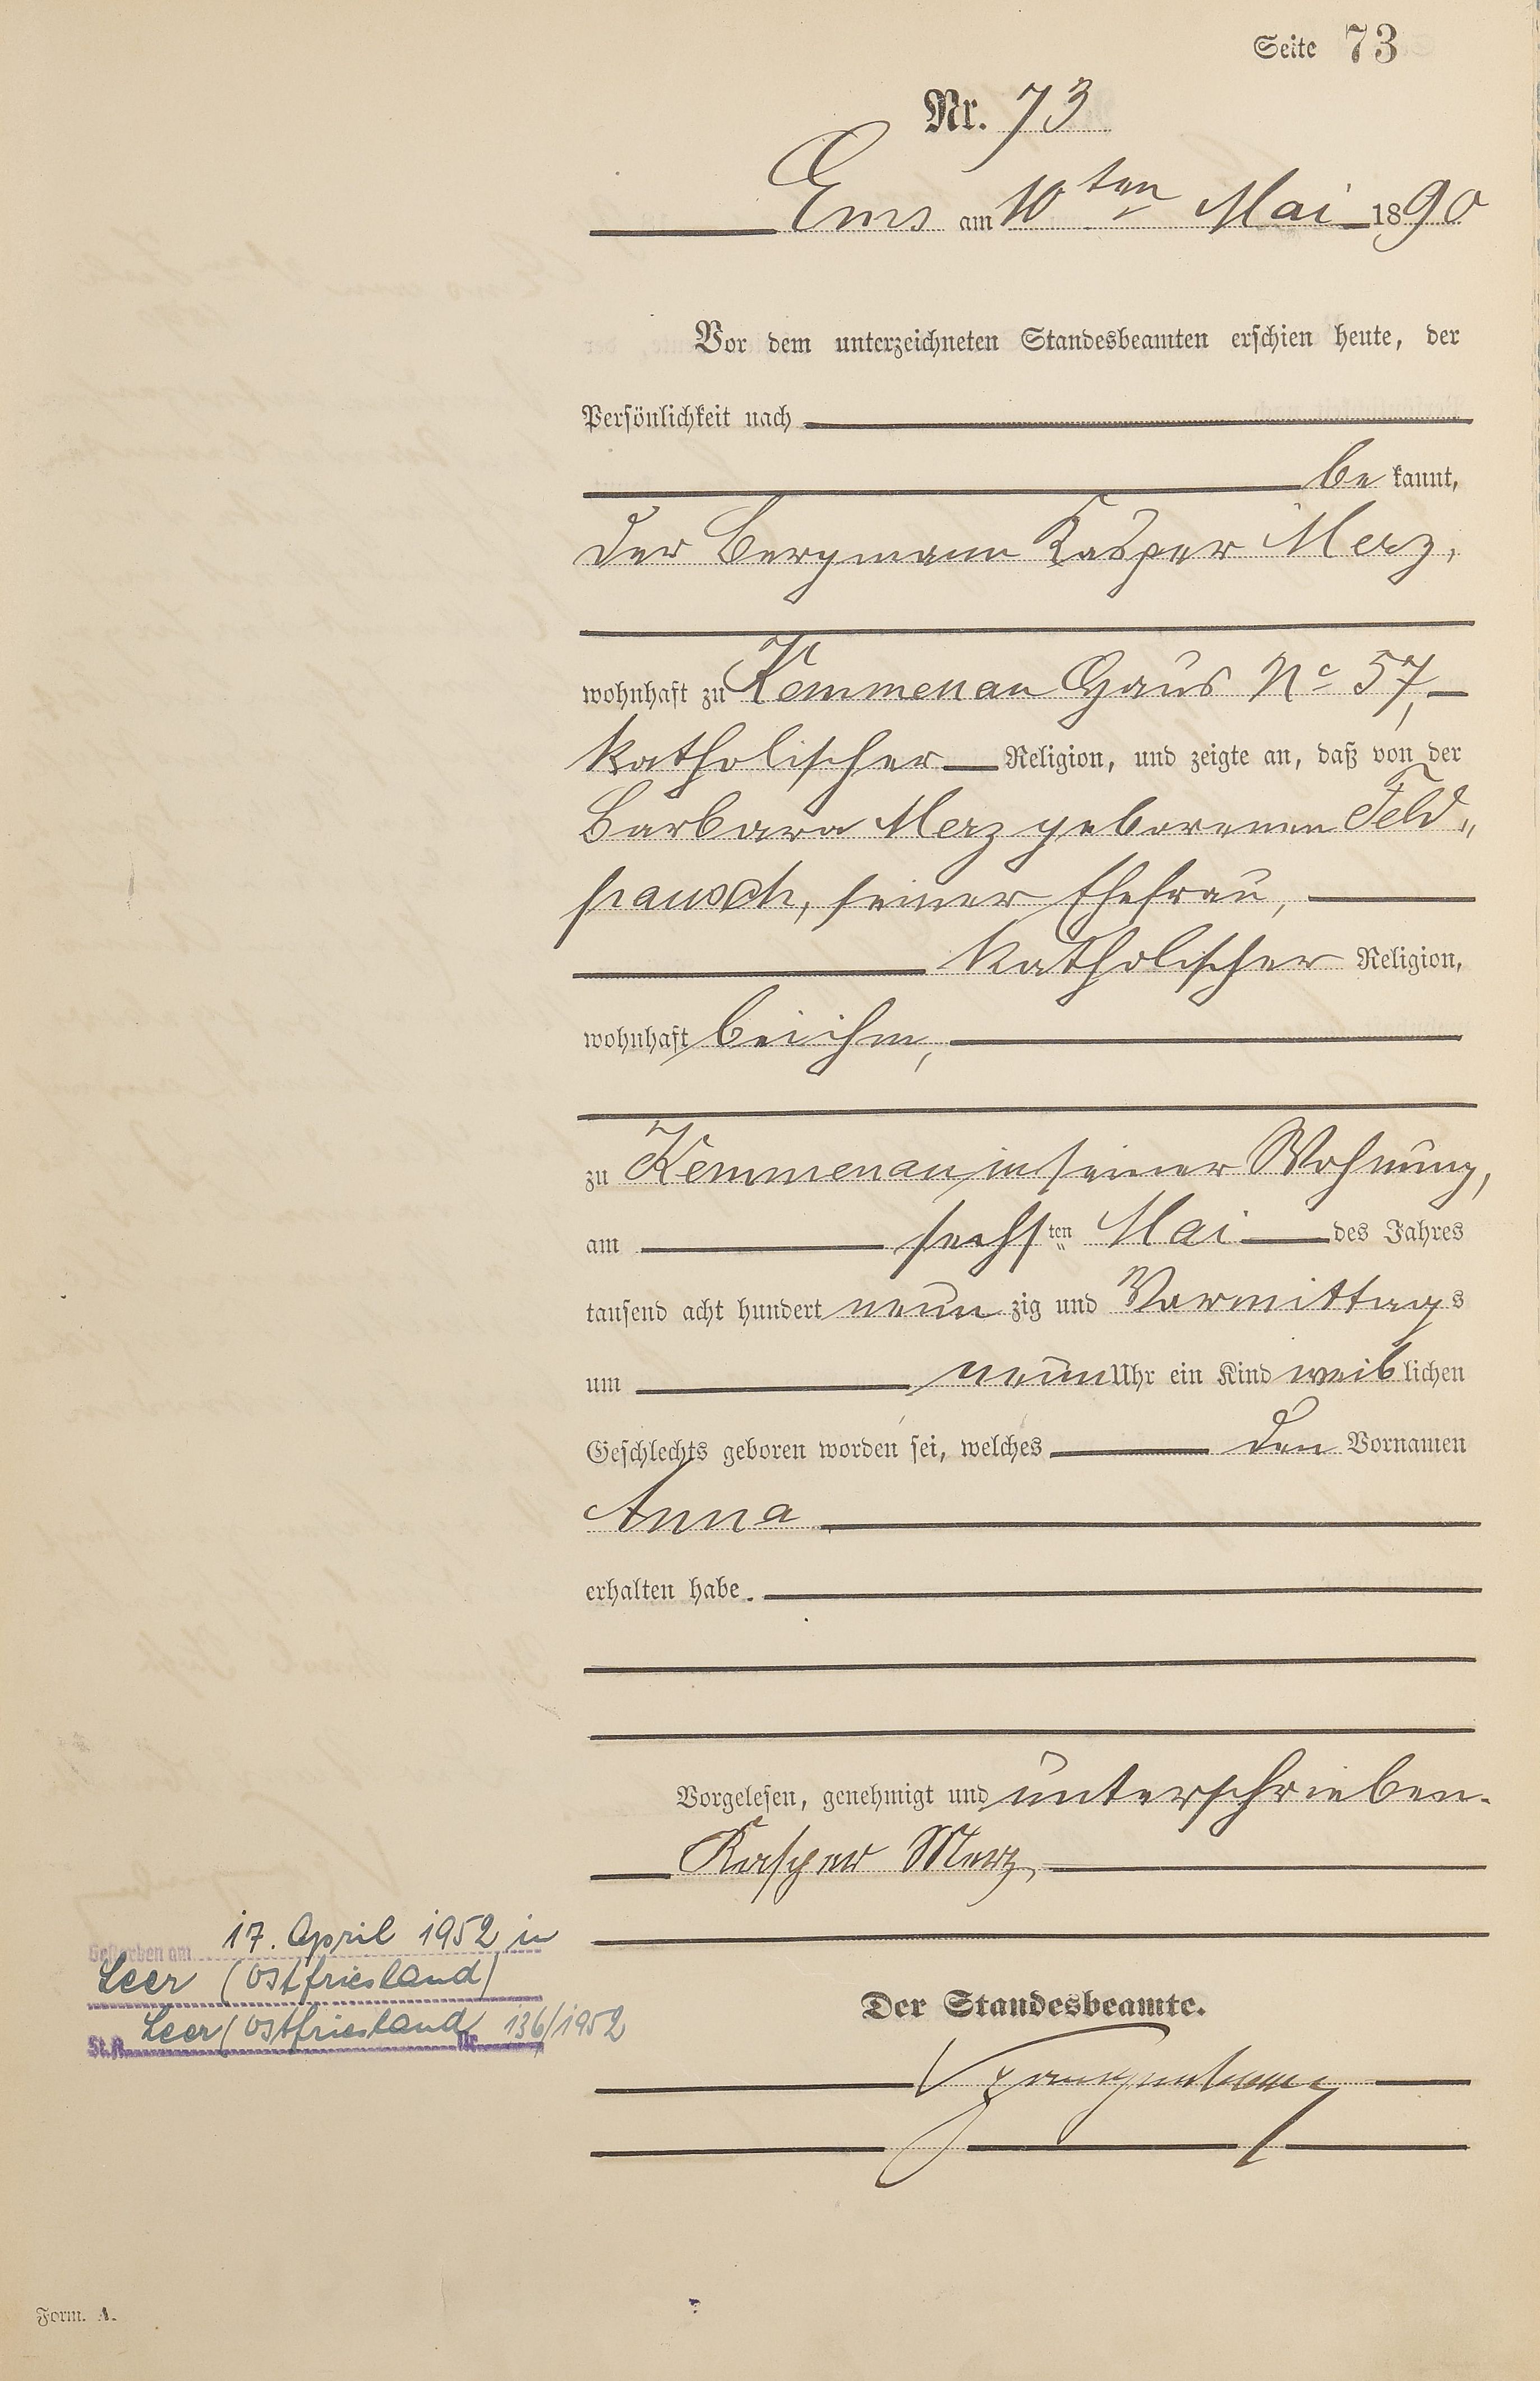 Seite 73
Nr. 73
Ems am 10ten Mai 1890
Vor dem unterzeichneten Standesbeamten erschien heute, der
Persönlichkeit nach
be kannt,
der Bergmann Kasper Merz,
wohnhaft zu Kemmenau Haus No 57,
katholischer Religion, und zeigte an, daß von der
Barbara Merz geborenen Feld„
pausch, seiner Ehefrau,
katholischer Religion,
wohnhaft bei ihm,
zu Kemmenau in seiner Wohnung,
am sechsten Mai des Jahres
tausend acht hundert neun zig und Vormittags
um neun Uhr ein Kind weiblichen
Geschlechts geboren worden sei, welches den Vornamen
Anna
erhalten habe.
Vorgelesen, genehmigt und unterschrieben.
Kasper Merz,
Gestorben am 17. April 1952 in
Leer (Ostfriesland)
St.A. Leer (Ostfriesland Nr. 136/1952
Der Standesbeamte.
Form. A.